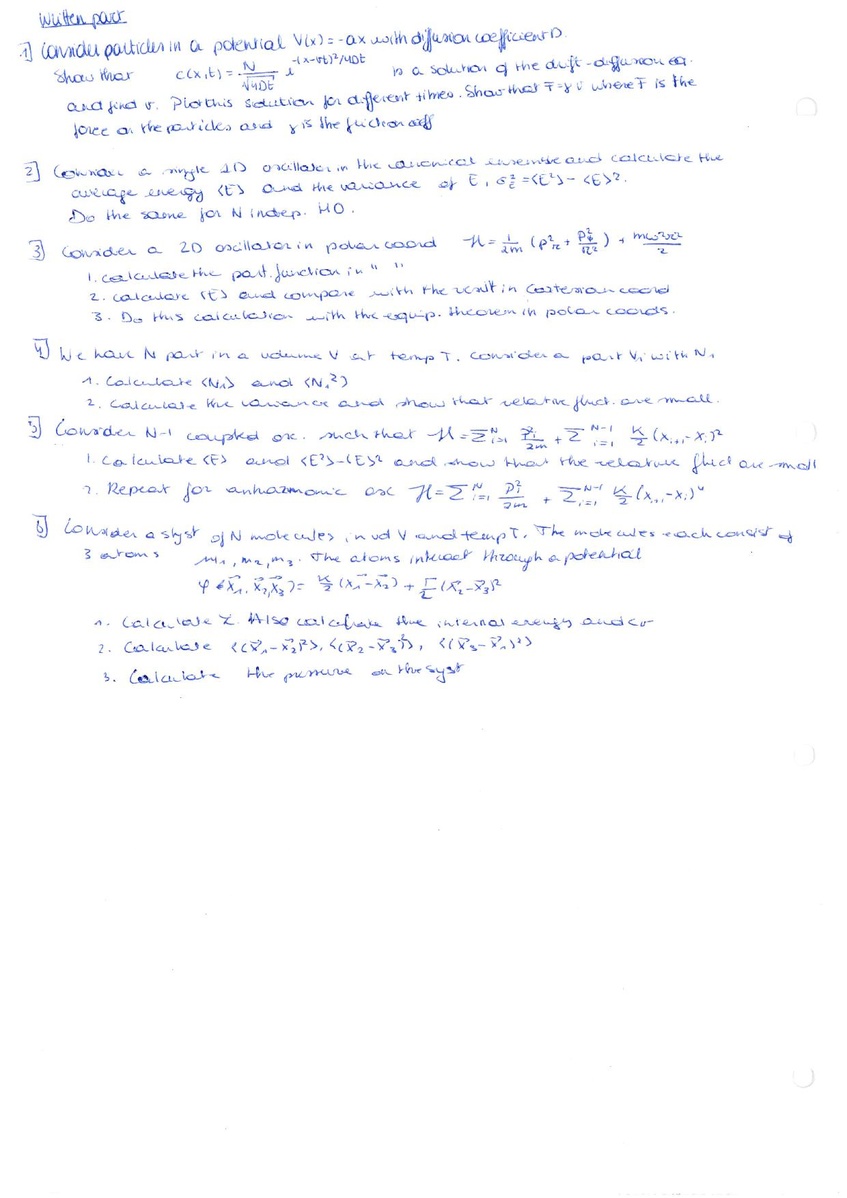 Written part
1] Consider particles in a potential V(x) = -ax with diffusion coefficient D.
Show that c(x,t) = N/√4Dt e^-(x-vt)²/4Dt is a solution of the drift-diffusion eq.
and find v. Plot this solution for different times. Show that F = γv where F is the
force on the particles and γ is the friction coeff
2] Consider a single 1D oscillator in the canonical ensemble and calculate the
average energy <E> and the variance of E, σ²_E = <E²> - <E>².
Do the same for N indep. HO.
3] Consider a 2D oscillator in polar coord H = 1/2m (p²_r + p²_φ/r²) + mω²r²/2
1. calculate the part. function in " "
2. calculate <E> and compare with the result in Cartesian coord
3. Do this calculation with the equip. theorem in polar coords.
4] We have N part in a volume V at temp T. Consider a part V₁ with N₁
1. Calculate <N₁> and <N₁²>
2. Calculate the variance and show that relative fluct. are small.
5] Consider N-1 coupled osc. such that H = Σ^N_i=1 p²_i/2m + Σ^N-1_i=1 K/2 (x_i+1 - x_i)²
1. Calculate <E> and <E²>-<E>² and show that the relative fluct are small
2. Repeat for anharmonic osc H = Σ^N_i=1 p²_i/2m + Σ^N-1_i=1 K/2 (x_i+1 - x_i)⁴
6] Consider a syst of N molecules in vol V and temp T. The molecules each consist of
3 atoms m₁, m₂, m₃. The atoms interact through a potential
φ(x⃗₁, x⃗₂, x⃗₃) = K/2 (x⃗₁-x⃗₂) + Γ/2 (x⃗₂-x⃗₃)²
1. Calculate Z. Also calculate the internal energy and cv
2. Calculate <(x⃗₁-x⃗₂)²>, <(x⃗₂-x⃗₃)²>, <(x⃗₃-x⃗₁)²>
3. Calculate the pressure on the syst